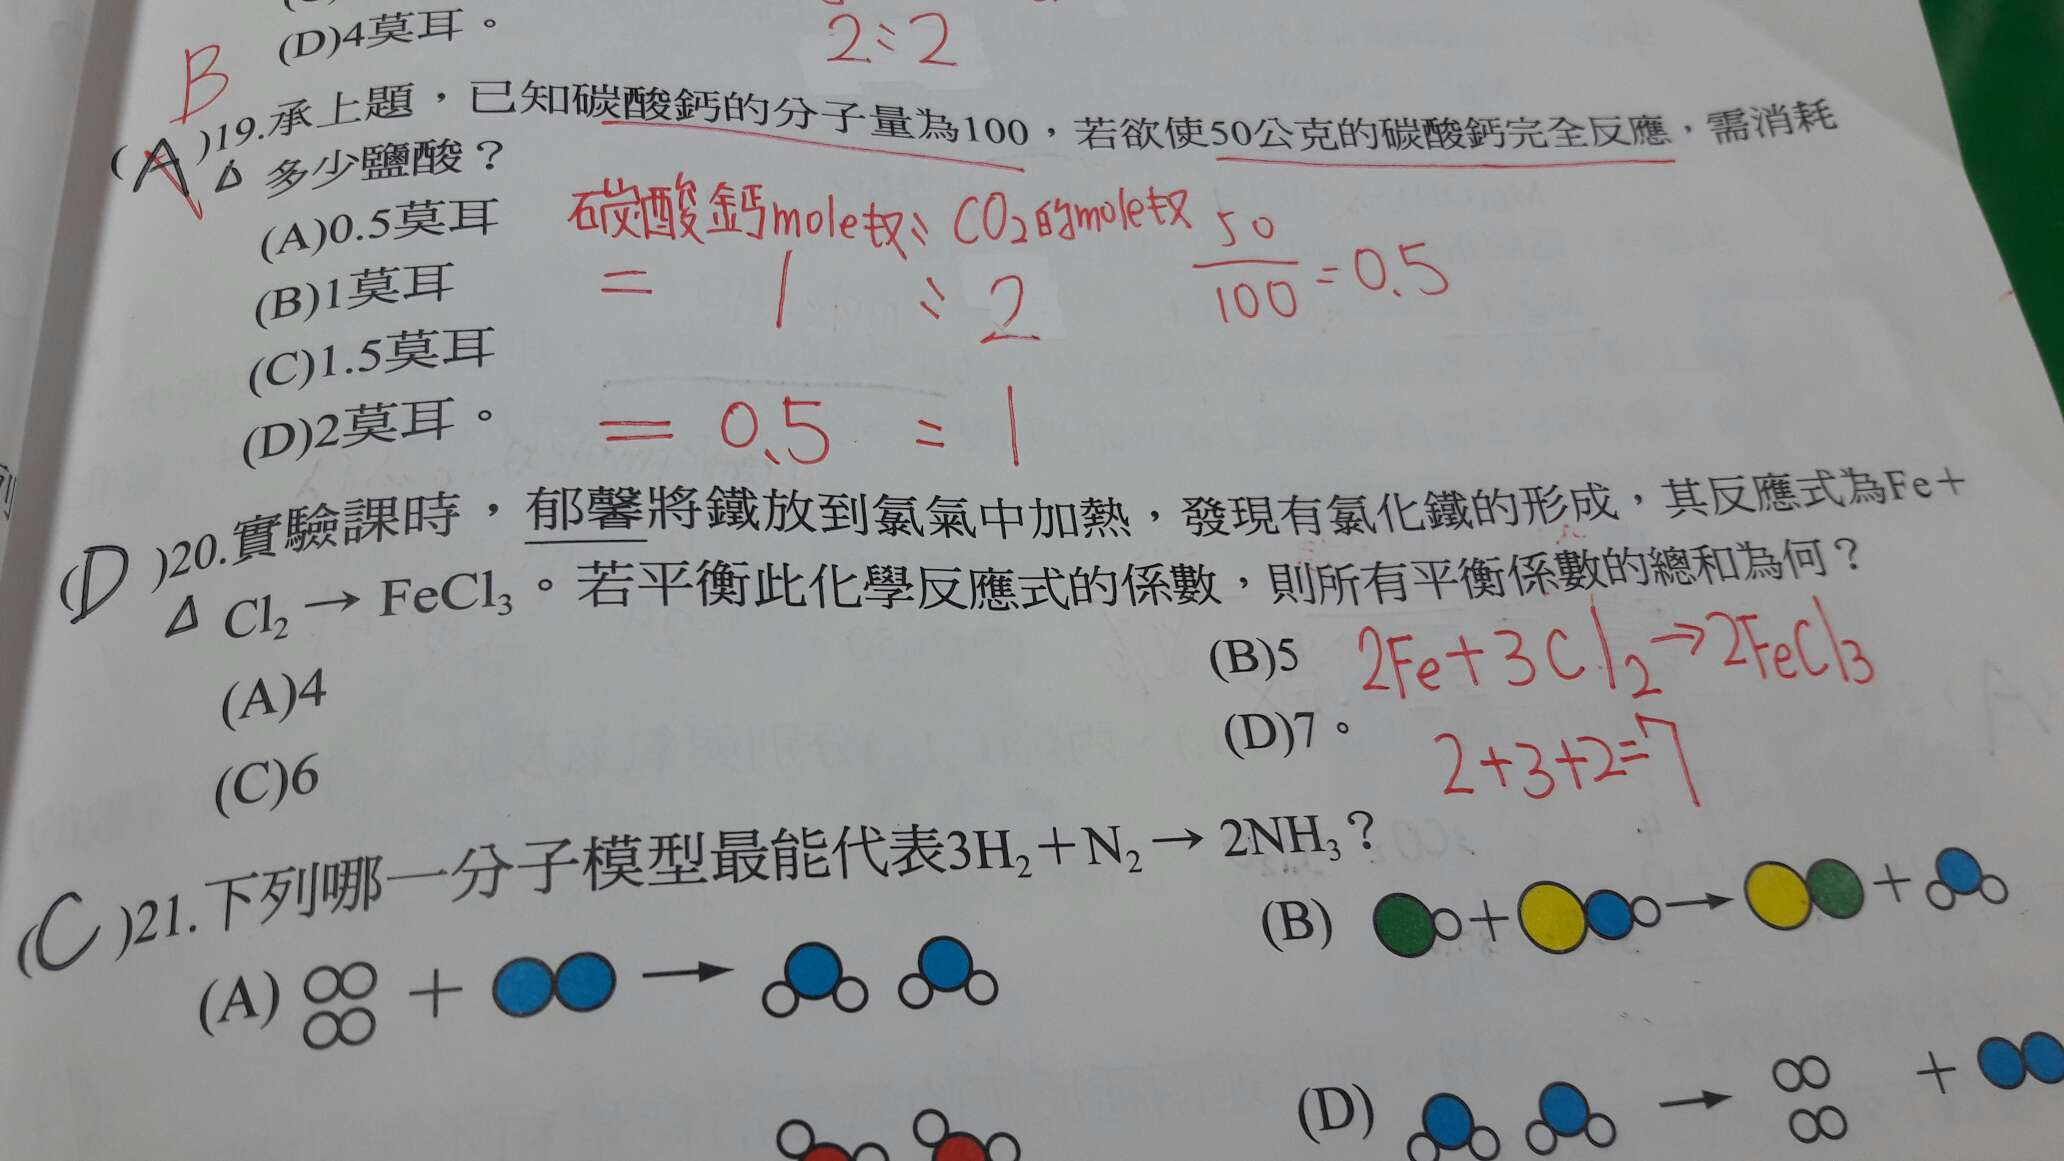 (D)4莫耳。
2:2
B
(A)19.承上題，已知碳酸鈣的分子量為100，若欲使50公克的碳酸鈣完全反應，需消耗
△ 多少鹽酸？
(A)0.5莫耳
碳酸鈣mole數:CO₂的mole數 50/100=0.5
(B)1莫耳
= 1 : 2
(C)1.5莫耳
(D)2莫耳。
= 0.5 = 1
(D)20.實驗課時，郁馨將鐵放到氯氣中加熱，發現有氯化鐵的形成，其反應式為Fe＋
△ Cl₂→FeCl₃。若平衡此化學反應式的係數，則所有平衡係數的總和為何？
(A)4
(B)5
2Fe+3Cl₂→2FeCl₃
(C)6
(D)7。
2+3+2=7
(C)21.下列哪一分子模型最能代表3H₂＋N₂→2NH₃？
(A) + →
(B) + → +
(D) → +